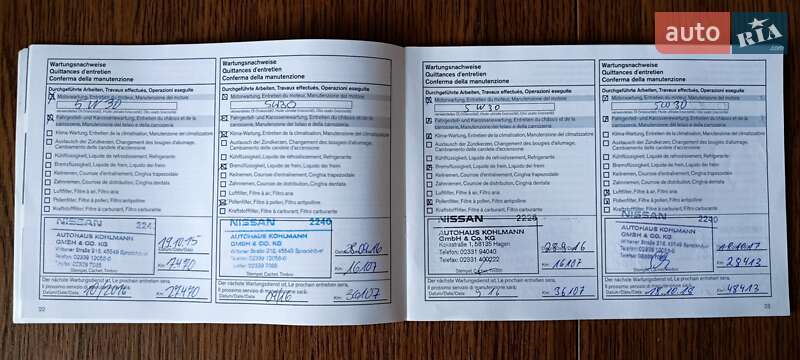 auto RIA.com
Wartungsnachweise
Quittances d'entretien
Conferma della manutenzione
Durchgeführte Arbeiten, Travaux effectués, Operazioni eseguite
Motorwartung, Entretien du moteur, Manutenzione del motore
5W30
Fahrgestell- und Karosseriewartung, Entretien du châssis et de la
carrosserie, Manutenzione del telaio e della carrozzeria
Klima-Wartung, Entretien de la climatisation, Manutenzione del climatizzatore
Austausch der Zündkerzen, Changement des bougies d'allumage,
Cambiamento delle candele d'accensione
Kühlflüssigkeit, Liquide de refroidissement, Refrigerante
Bremsflüssigkeit, Liquide de frein, Liquido dei freni
Keilriemen, Courroie de distribution, Cinghia trapezoidale
Zahnriemen, Courroie de distribution, Cinghia dentata
Luftfilter, Filtre à air, Filtro aria
Pollenfilter, Filtre à pollen, Filtro polline
Kraftstofffilter, Filtre à carburant, Filtro carburante
NISSAN
AUTOHAUS KOHLMANN
GMBH & CO. KG
Wittener Straße 216, 45549 Sprockhövel
Telefon: 02339 12050-0
Telefax: 02339 7035
Stempel, Cachet, Timbro
19.10.15
Km: 7470
Der nächste Wartungsdienst ist, Le prochain entretien sera,
Il prossimo servizio di manutenzione sarà:
Datum/Date/Data: 10/2016 Km: 27470
22
Wartungsnachweise
Quittances d'entretien
Conferma della manutenzione
Durchgeführte Arbeiten, Travaux effectués, Operazioni eseguite
Motorwartung, Entretien du moteur, Manutenzione del motore
5W30
Fahrgestell- und Karosseriewartung, Entretien du châssis et de la
carrosserie, Manutenzione del telaio e della carrozzeria
Klima-Wartung, Entretien de la climatisation, Manutenzione del climatizzatore
Austausch der Zündkerzen, Changement des bougies d'allumage,
Cambiamento delle candele d'accensione
Kühlflüssigkeit, Liquide de refroidissement, Refrigerante
Bremsflüssigkeit, Liquide de frein, Liquido dei freni
Keilriemen, Courroie de distribution, Cinghia trapezoidale
Zahnriemen, Courroie de distribution, Cinghia dentata
Luftfilter, Filtre à air, Filtro aria
Pollenfilter, Filtre à pollen, Filtro polline
Kraftstofffilter, Filtre à carburant, Filtro carburante
NISSAN 2240
AUTOHAUS KOHLMANN
GMBH & CO. KG
Wittener Straße 216, 45549 Sprockhövel
Telefon: 02339 12050-0
Telefax: 02339 7035
Stempel, Cachet, Timbro
Km: 16107
Der nächste Wartungsdienst ist, Le prochain entretien sera,
Il prossimo servizio di manutenzione sarà:
Datum/Date/Data: Km: 36107
Wartungsnachweise
Quittances d'entretien
Conferma della manutenzione
Durchgeführte Arbeiten, Travaux effectués, Operazioni eseguite
Motorwartung, Entretien du moteur, Manutenzione del motore
5W30
Fahrgestell- und Karosseriewartung, Entretien du châssis et de la
carrosserie, Manutenzione del telaio e della carrozzeria
Klima-Wartung, Entretien de la climatisation, Manutenzione del climatizzatore
Austausch der Zündkerzen, Changement des bougies d'allumage,
Cambiamento delle candele d'accensione
Kühlflüssigkeit, Liquide de refroidissement, Refrigerante
Bremsflüssigkeit, Liquide de frein, Liquido dei freni
Keilriemen, Courroie de distribution, Cinghia trapezoidale
Zahnriemen, Courroie de distribution, Cinghia dentata
Luftfilter, Filtre à air, Filtro aria
Pollenfilter, Filtre à pollen, Filtro polline
Kraftstofffilter, Filtre à carburant, Filtro carburante
NISSAN
AUTOHAUS KOHLMANN
GmbH & Co. KG
58135 Hagen
Telefon: 02331 94040
Telefax: 02331 400222
Stempel, Cachet, Timbro
Km: 16107
Der nächste Wartungsdienst ist, Le prochain entretien sera,
Il prossimo servizio di manutenzione sarà:
Datum/Date/Data: Km: 36107
Wartungsnachweise
Quittances d'entretien
Conferma della manutenzione
Durchgeführte Arbeiten, Travaux effectués, Operazioni eseguite
Motorwartung, Entretien du moteur, Manutenzione del motore
5W30
Fahrgestell- und Karosseriewartung, Entretien du châssis et de la
carrosserie, Manutenzione del telaio e della carrozzeria
Klima-Wartung, Entretien de la climatisation, Manutenzione del climatizzatore
Austausch der Zündkerzen, Changement des bougies d'allumage,
Cambiamento delle candele d'accensione
Kühlflüssigkeit, Liquide de refroidissement, Refrigerante
Bremsflüssigkeit, Liquide de frein, Liquido dei freni
Keilriemen, Courroie de distribution, Cinghia trapezoidale
Zahnriemen, Courroie de distribution, Cinghia dentata
Luftfilter, Filtre à air, Filtro aria
Pollenfilter, Filtre à pollen, Filtro polline
Kraftstofffilter, Filtre à carburant, Filtro carburante
NISSAN 2240
AUTOHAUS KOHLMANN
GMBH & CO. KG
Wittener Straße 216, 45549 Sprockhövel
Telefon: 02339 12050-0
Telefax: 02339 7035
Stempel, Cachet, Timbro
Km: 28413
Der nächste Wartungsdienst ist, Le prochain entretien sera,
Il prossimo servizio di manutenzione sarà:
Datum/Date/Data: 18.10.18 Km: 48413
23